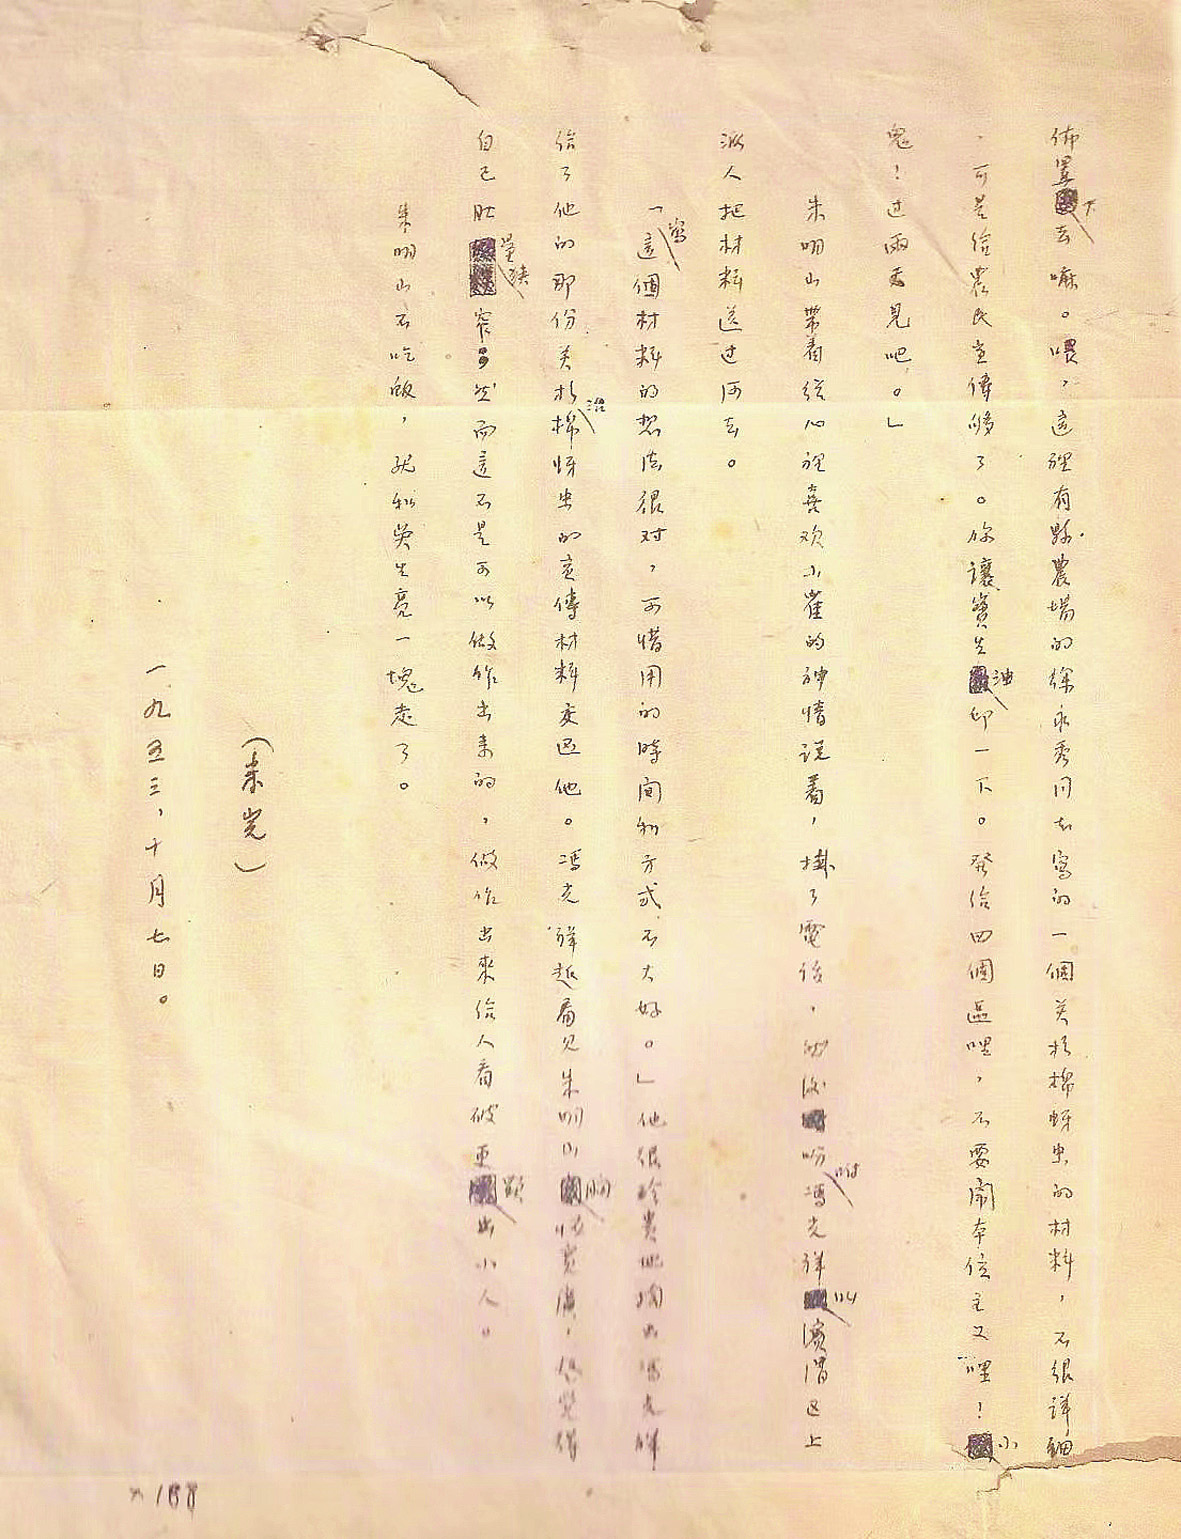 佈置下去嘛。喂，這裡有縣農場的徐永秀同志寫的一個关於棉蚜虫的材料，不很詳細
，可是给農民宣傳够了。你讓寳生油印一下。發给四個區哩，不要鬧本位主义哩！小
鬼！过兩天見吧。」
朱明山帶着從心裡喜欢小崔的神情說着，掛了電话，然後吩咐馮光祥叫濱渭区上
派人把材料送过河去。
「寫這個材料的想法很对，可惜用的時间和方式不大好。」他很珍贵地掏出馮光祥
给了他的那份关於治棉蚜虫的宣傳材料交还他。馮光祥越看见朱明山胸怀寛廣，越覚得
自己肚量狭窄。然而這不是可以做作出来的，做作出來给人看破更顯出小人。
朱明山不吃飯，就和吳生亮一塊走了。
（未完）
一九五三，十月七日。
188